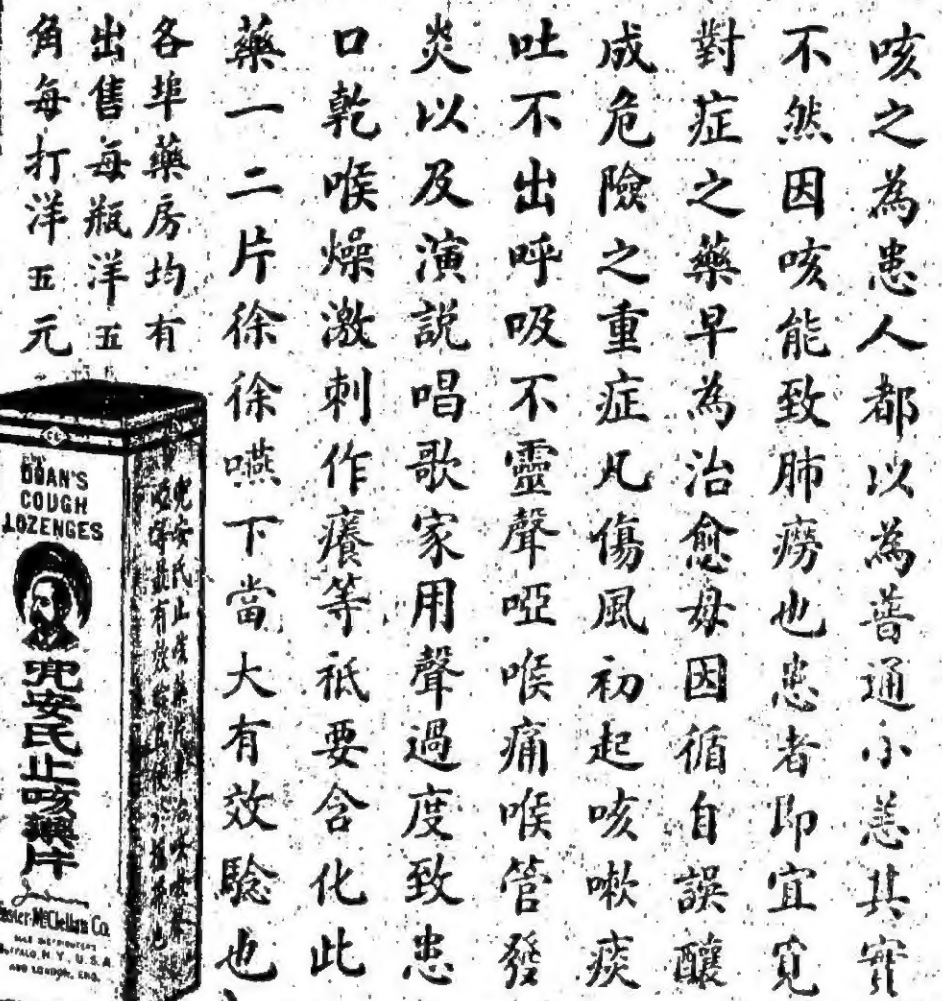 咳之為患人都以為普通小恙其實
不然因咳能致肺癆也患者即宜覓
對症之藥早為治愈毋因循自誤釀
成危險之重症凡傷風初起咳嗽痰
吐不出呼吸不靈聲啞喉痛喉管發
炎以及演説唱歌家用聲過度致患
口乾喉燥激刺作癢等祗要含化此
藥一二片徐徐嚥下當大有效驗也
各埠藥房均有
出售每瓶洋五
角每打洋五元
DOAN'S
COUGH
LOZENGES
兜安氏止咳藥片
Foster-McClellan Co.
BUFFALO, N.Y., U.S.A.
AND LONDON, ENG.